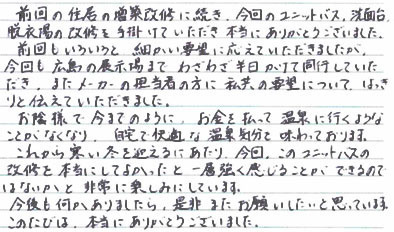 前回の住居の増築改修に続き、今回のユニットバス、洗面台、
脱衣場の改修を手掛けていただき本当にありがとうございました。
前回もいろいろと細かい要望に応えていただきましたが、
今回も広島の展示場までわざわざ半日かけて同行していた
だき、またメーカーの担当者の方に私共の要望について、はっき
りと伝えていただきました。
お陰様で今までのように、お金を払って温泉に行くような
ことがなくなり、自宅で快適な温泉気分を味わっております。
これから寒い冬を迎えるにあたり、今回、このユニットバスの
改修を本当にしてよかったと一層強く感じることができるので
はないかと非常に楽しみにしています。
今後も何かありましたら、是非またお願いしたいと思っています。
このたびは、本当にありがとうございました。